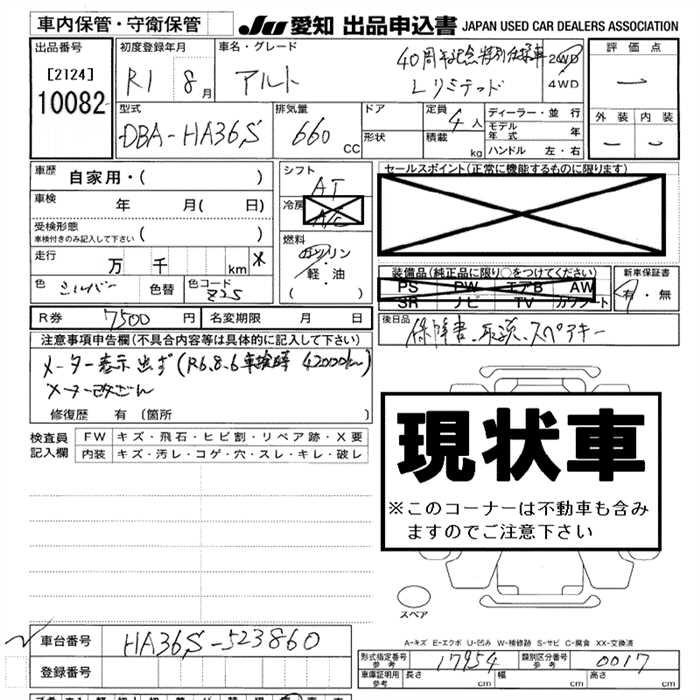 車内保管・守衛保管 JU 愛知 出品申込書 JAPAN USED CAR DEALERS ASSOCIATION
出品番号 初度登録年月 車名・グレード 評価点
[2124] R1 8月 アルト 40周年記念特別仕様車 2WD
10082 Lリミテッド 4WD ー
型式 排気量 ドア 定員 4人 ディーラー・並行 外装 内装
DBA-HA36S 660 CC 形状 積載 kg モデル年式 年 ー ー
ハンドル 左・右
車歴 自家用・( ) シフト AT セールスポイント(正常に機能するものに限ります)
車検 年 月( 日) 冷房 A/C
受検形態 車検付きのみ記入して下さい ( )
走行 万 千 km * 燃料 ガソリン・軽・油 ( ) 装備品(純正品に限り○をつけてください) 新車保証書
PS PW エアB AW 有・無
色 シルバー 色替 色コード Z2S SR ナビ TV カワシート
R券 7500 円 名変期限 月 日 後日品 保障書、取説、スペアキー
注意事項申告欄(不具合内容等は具体的に記入して下さい)
メーター表示出ず(R6.8.6車検時 42000km)
メーター改ざん
修復歴 有 (箇所 )
検査員記入欄 FW キズ・飛石・ヒビ割・リペア跡・X要
内装 キズ・汚レ・コゲ・穴・スレ・キレ・破レ
現状車
※このコーナーは不動車も含み
ますのでご注意下さい
スペア
A-キズ E-エクボ U-凹み W-補修跡 S-サビ C-腐食 XX-交換済
車台番号 HA36S-523860 形式指定番号 参考 17954 類別区分番号 参考 0017
登録番号 車庫証明用 参考 長さ cm 幅 cm 高さ cm